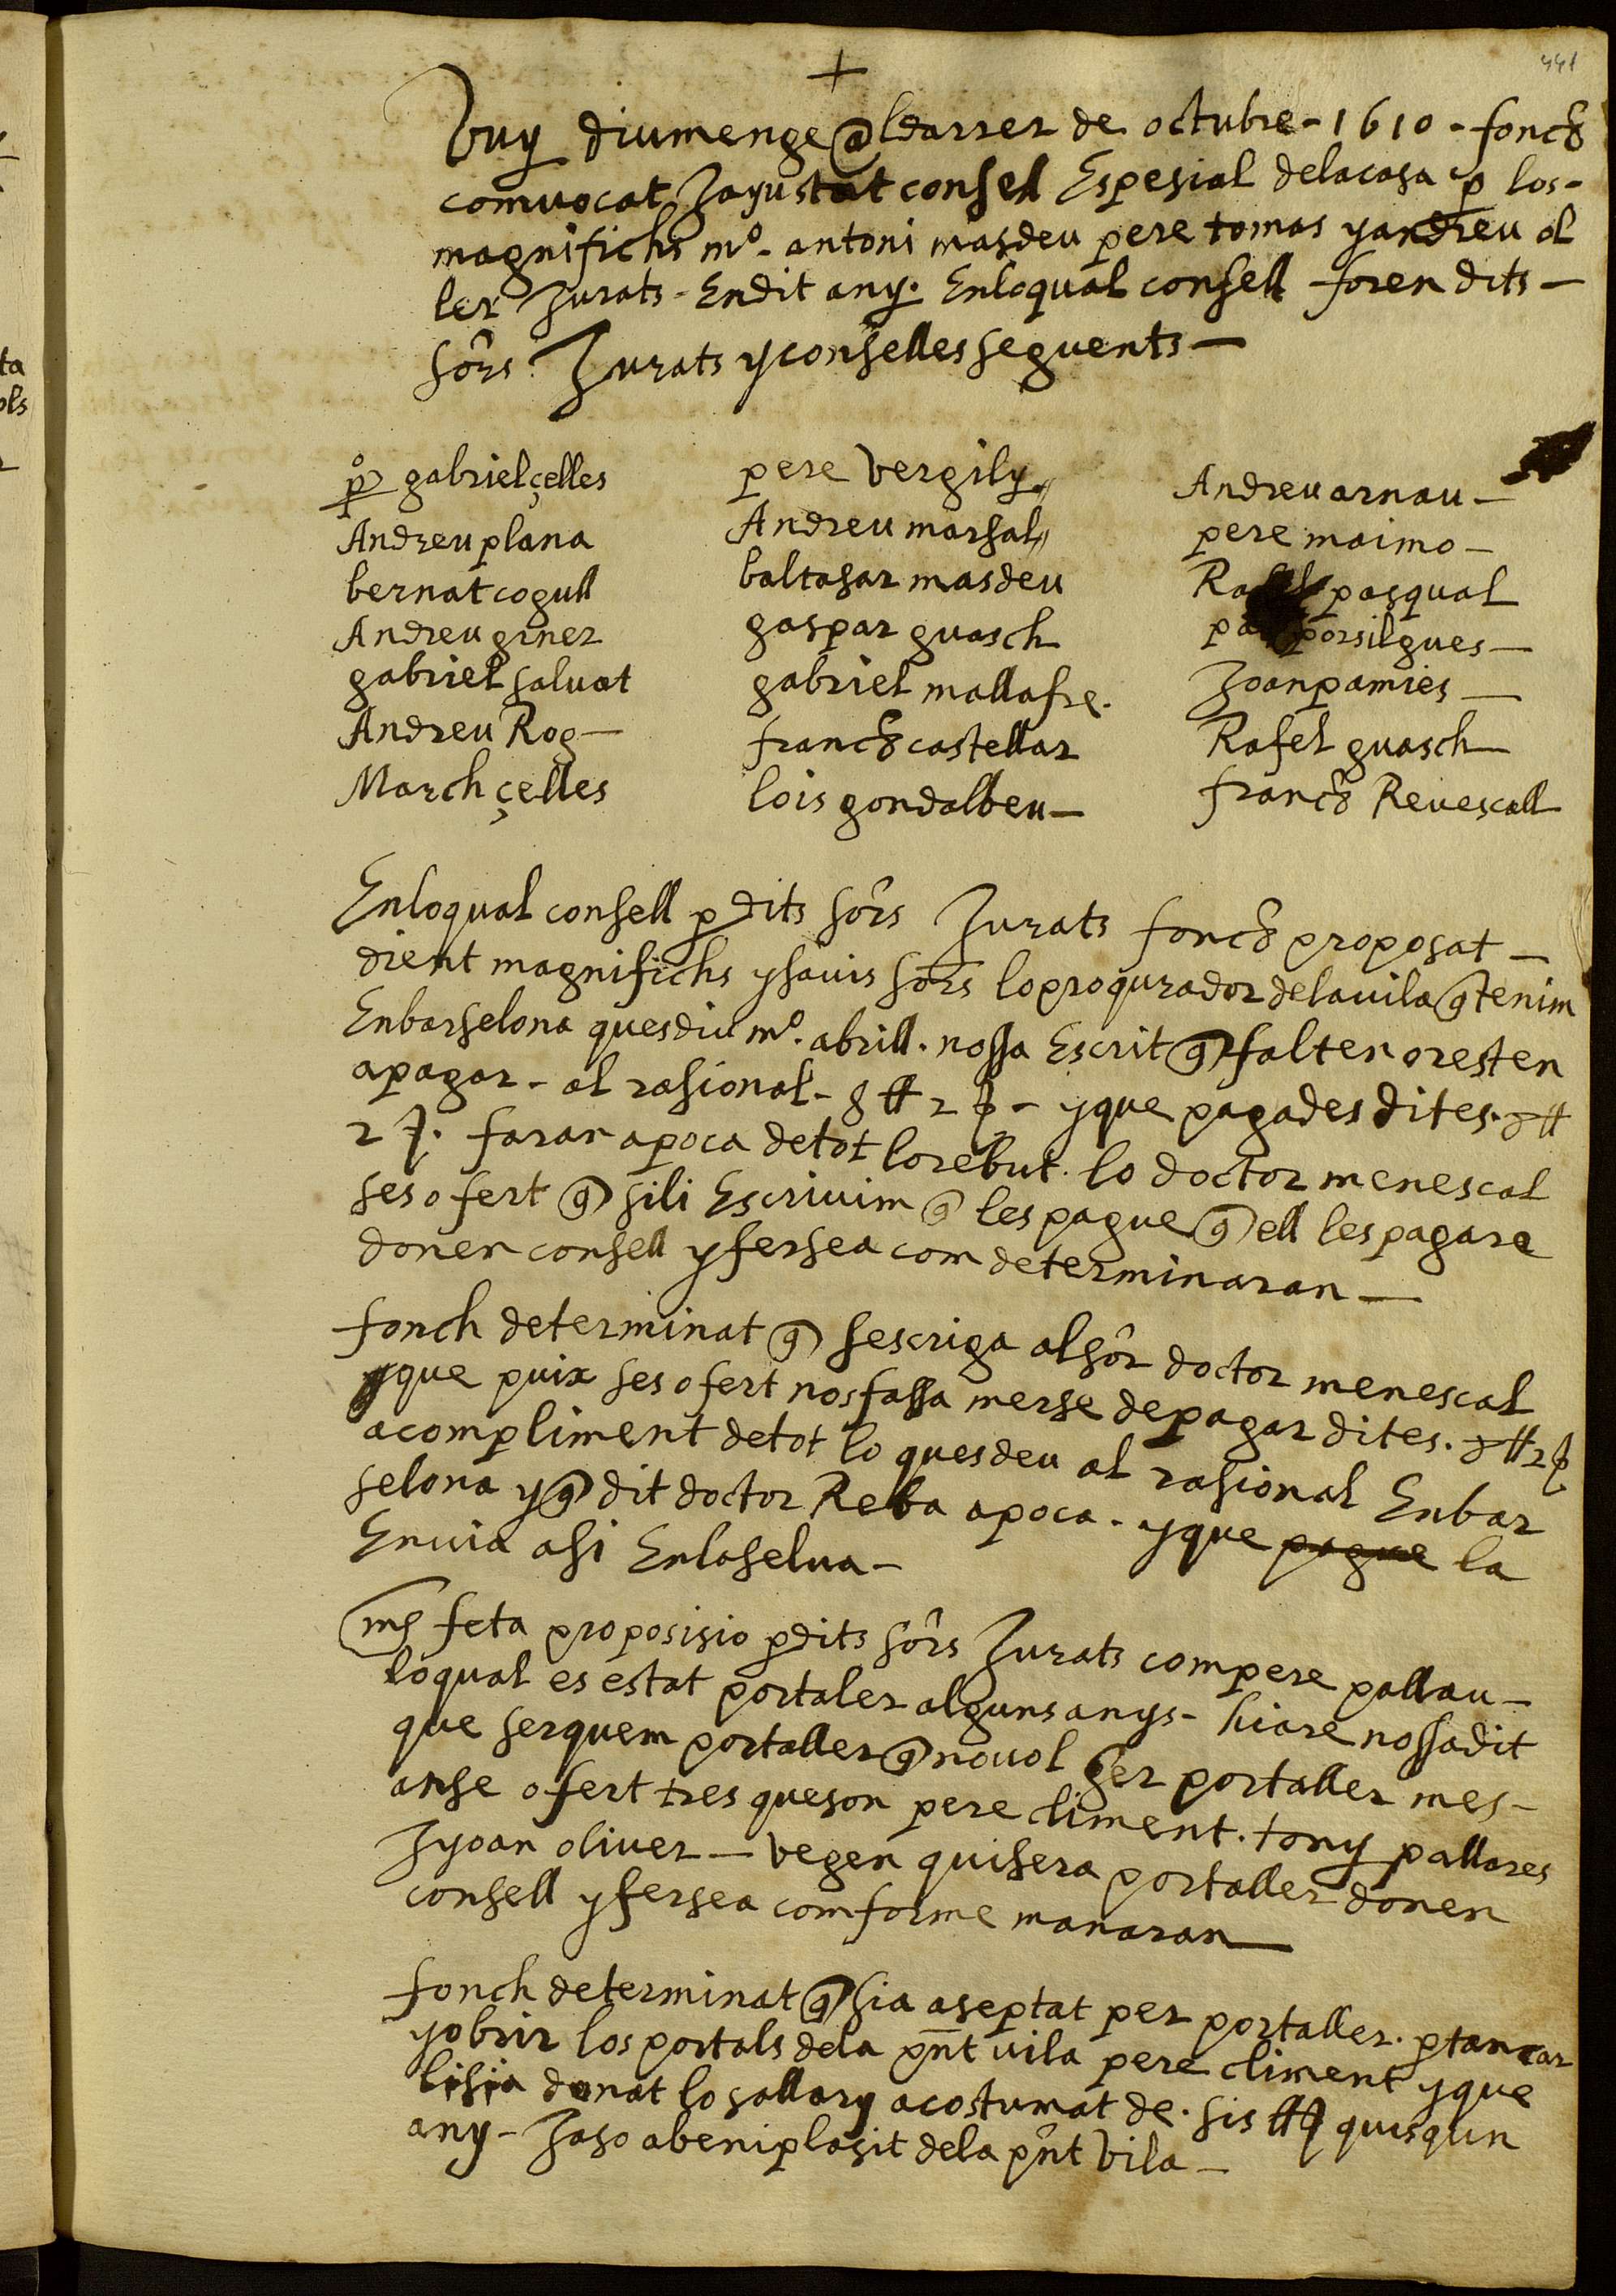 +
441
Vuy diumenge @ ldarrer de octubre - 1610 - fonch
comvocat Jajustat consell Espesial delacasa p los -
magnifichs mº. antoni masdeu pere tomas yandreu ol
ler Jurats - Endit any. Enloqual consell foren dits -
sors Jurats yconselles seguents -
pº gabriel çelles
Andreu plana
bernat cogull
Andreu giner
gabriel saluat
Andreu Rog -
March çelles
pere vergily
Andreu marsal
baltasar masdeu
gaspar guasch
gabriel mallafre.
franch castellar
lois gondalbeu -
Andreu arnau -
pere maimo -
Rafel pasqual
porsilgues -
Joan pamies -
Rafel guasch
franch Reuescall
Enloqual consell p dits sors Jurats fonch proposat -
dient magnifichs ysauis sors loproqurador delauila q tenim
Enbarselona quesdiu mº. abrill. nossa Escrit q falten oresten
apagar - al rasional - 8 ll 2 s - yque pagades dites. 8 ll
2 s. faran apoca detot lorebut. lo doctor menescal
ses ofert q sili Escriuim q les pague q ell lespagara
donen consell yfersea com determinaran -
fonch determinat q sescriga alsor doctor menescal
yque puix ses ofert nosfassa merse depagar dites. 8 ll 2 s
acompliment detot lo quesdeu al rasional Enbar
selona y q dit doctor Reba apoca. yque pague la
Enuia asi Enlaselua -
mes feta proposisio p dits sors Jurats com pere pallau -
loqual es estat portaler alguns anys - hiare nossadit
que serquem portaller q nouol ser portaller mes -
anse ofert tres queson pere climent. tony pallares
Jyoan oliuer - vegen quisera portaller donen
consell yfersea comforme manaran
fonch determinat q sia aseptat per portaller. p tancar
yobrir los portals dela pnt uila pere climent yque
lisia donat lo sallary acostumat de. sis ll quisqun
any - Jaso abeniplasit dela pnt vila -